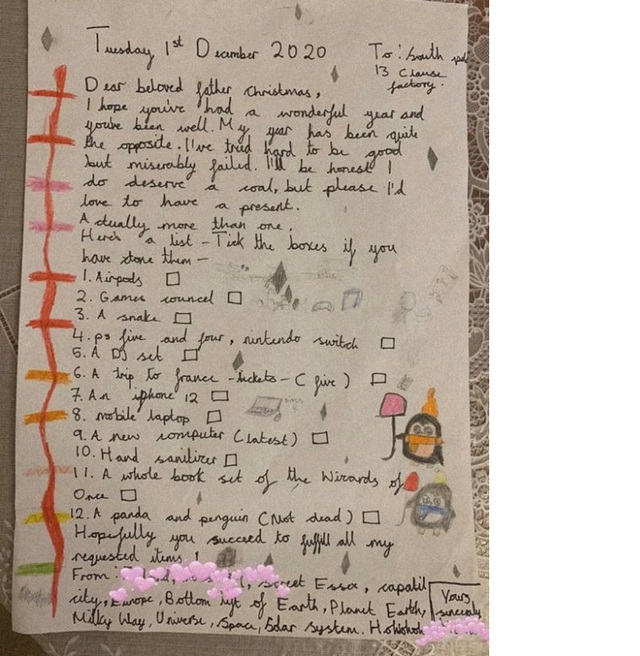 Tuesday 1st December 2020
To: South
13 Clause
factory.
Dear beloved father Christmas,
I hope you've had a wonderful year and
you've been well. My year has been quite
the opposite. I've tried hard to be good
but miserably failed. I'll be honest I
do deserve a coal, but please I'd
love to have a present.
Actually more than one.
Here's a list - Tick the boxes if you
have done them -
1. Airpods
2. Games councel
3. A snake
4. ps five and four, nintendo switch
5. A DJ set
6. A trip to france - tickets - (five)
7. An iphone 12
8. mobile laptop
9. A new computer (latest)
10. Hand sanitizer
11. A whole book set of the Wizards of
Once
12. A panda and penguin (Not dead)
Hopefully you succeed to fulfill all my
requested items!
From: street Essex, capatil
city, Europe, Bottom of Earth, Planet Earth,
Milky Way, Universe, Space, Solar System. Hohohoh
Yours
sincerely